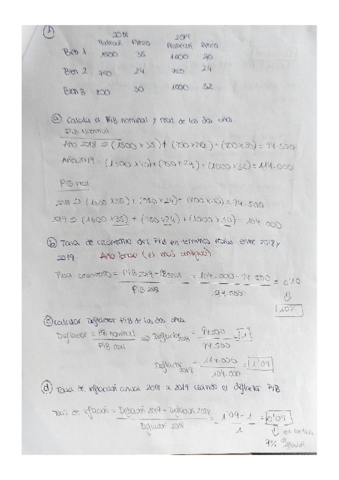 ①
2018 2019
Producción Precio Producción Precio
Bien 1 1500 35 1600 40
Bien 2 750 24 750 24
Bien 3 800 30 1000 32
a) Calcula el PIB nominal y real de los dos años.
PIB nominal
Año 2018 ⇒ (1500 x 35) + (750x24) + (800x30) = 94.500
Año 2019 = (1600 x 40) + (750 x 24) + (1000 x 32) = 114.000
PIB real
2018 ⇒ (1500 x 35) + (750 x 24) + (800 x 30) = 94.500
2019 ⇒ (1600 x 35) + (750 x 24) + (1000 x 30) = 104.000
b) Tasa de crecimiento del PIB en términos reales entre 2018 y
2019. Año base (el más antiguo)
Tasa crecimiento = PIB 2019 - PIB 2018 / PIB 2018 = 104.000 - 94.500 / 94.500 = 0'10
↓
10%
c) Calcular Deflactor PIB de los dos años
Deflactor = PIB nominal / PIB real ⇒ Deflactor 2018 = 94.500 / 94.500 = 1
Deflactor 2019 = 114.000 / 104.000 = 1'09
d) Tasa de inflación anual 2018 a 2019 usando el deflactor PIB
Tasa de inflación = Deflactor 2019 - Deflactor 2018 / Deflactor 2018 = 1'09 - 1 / 1 = 0'09
↓
9%